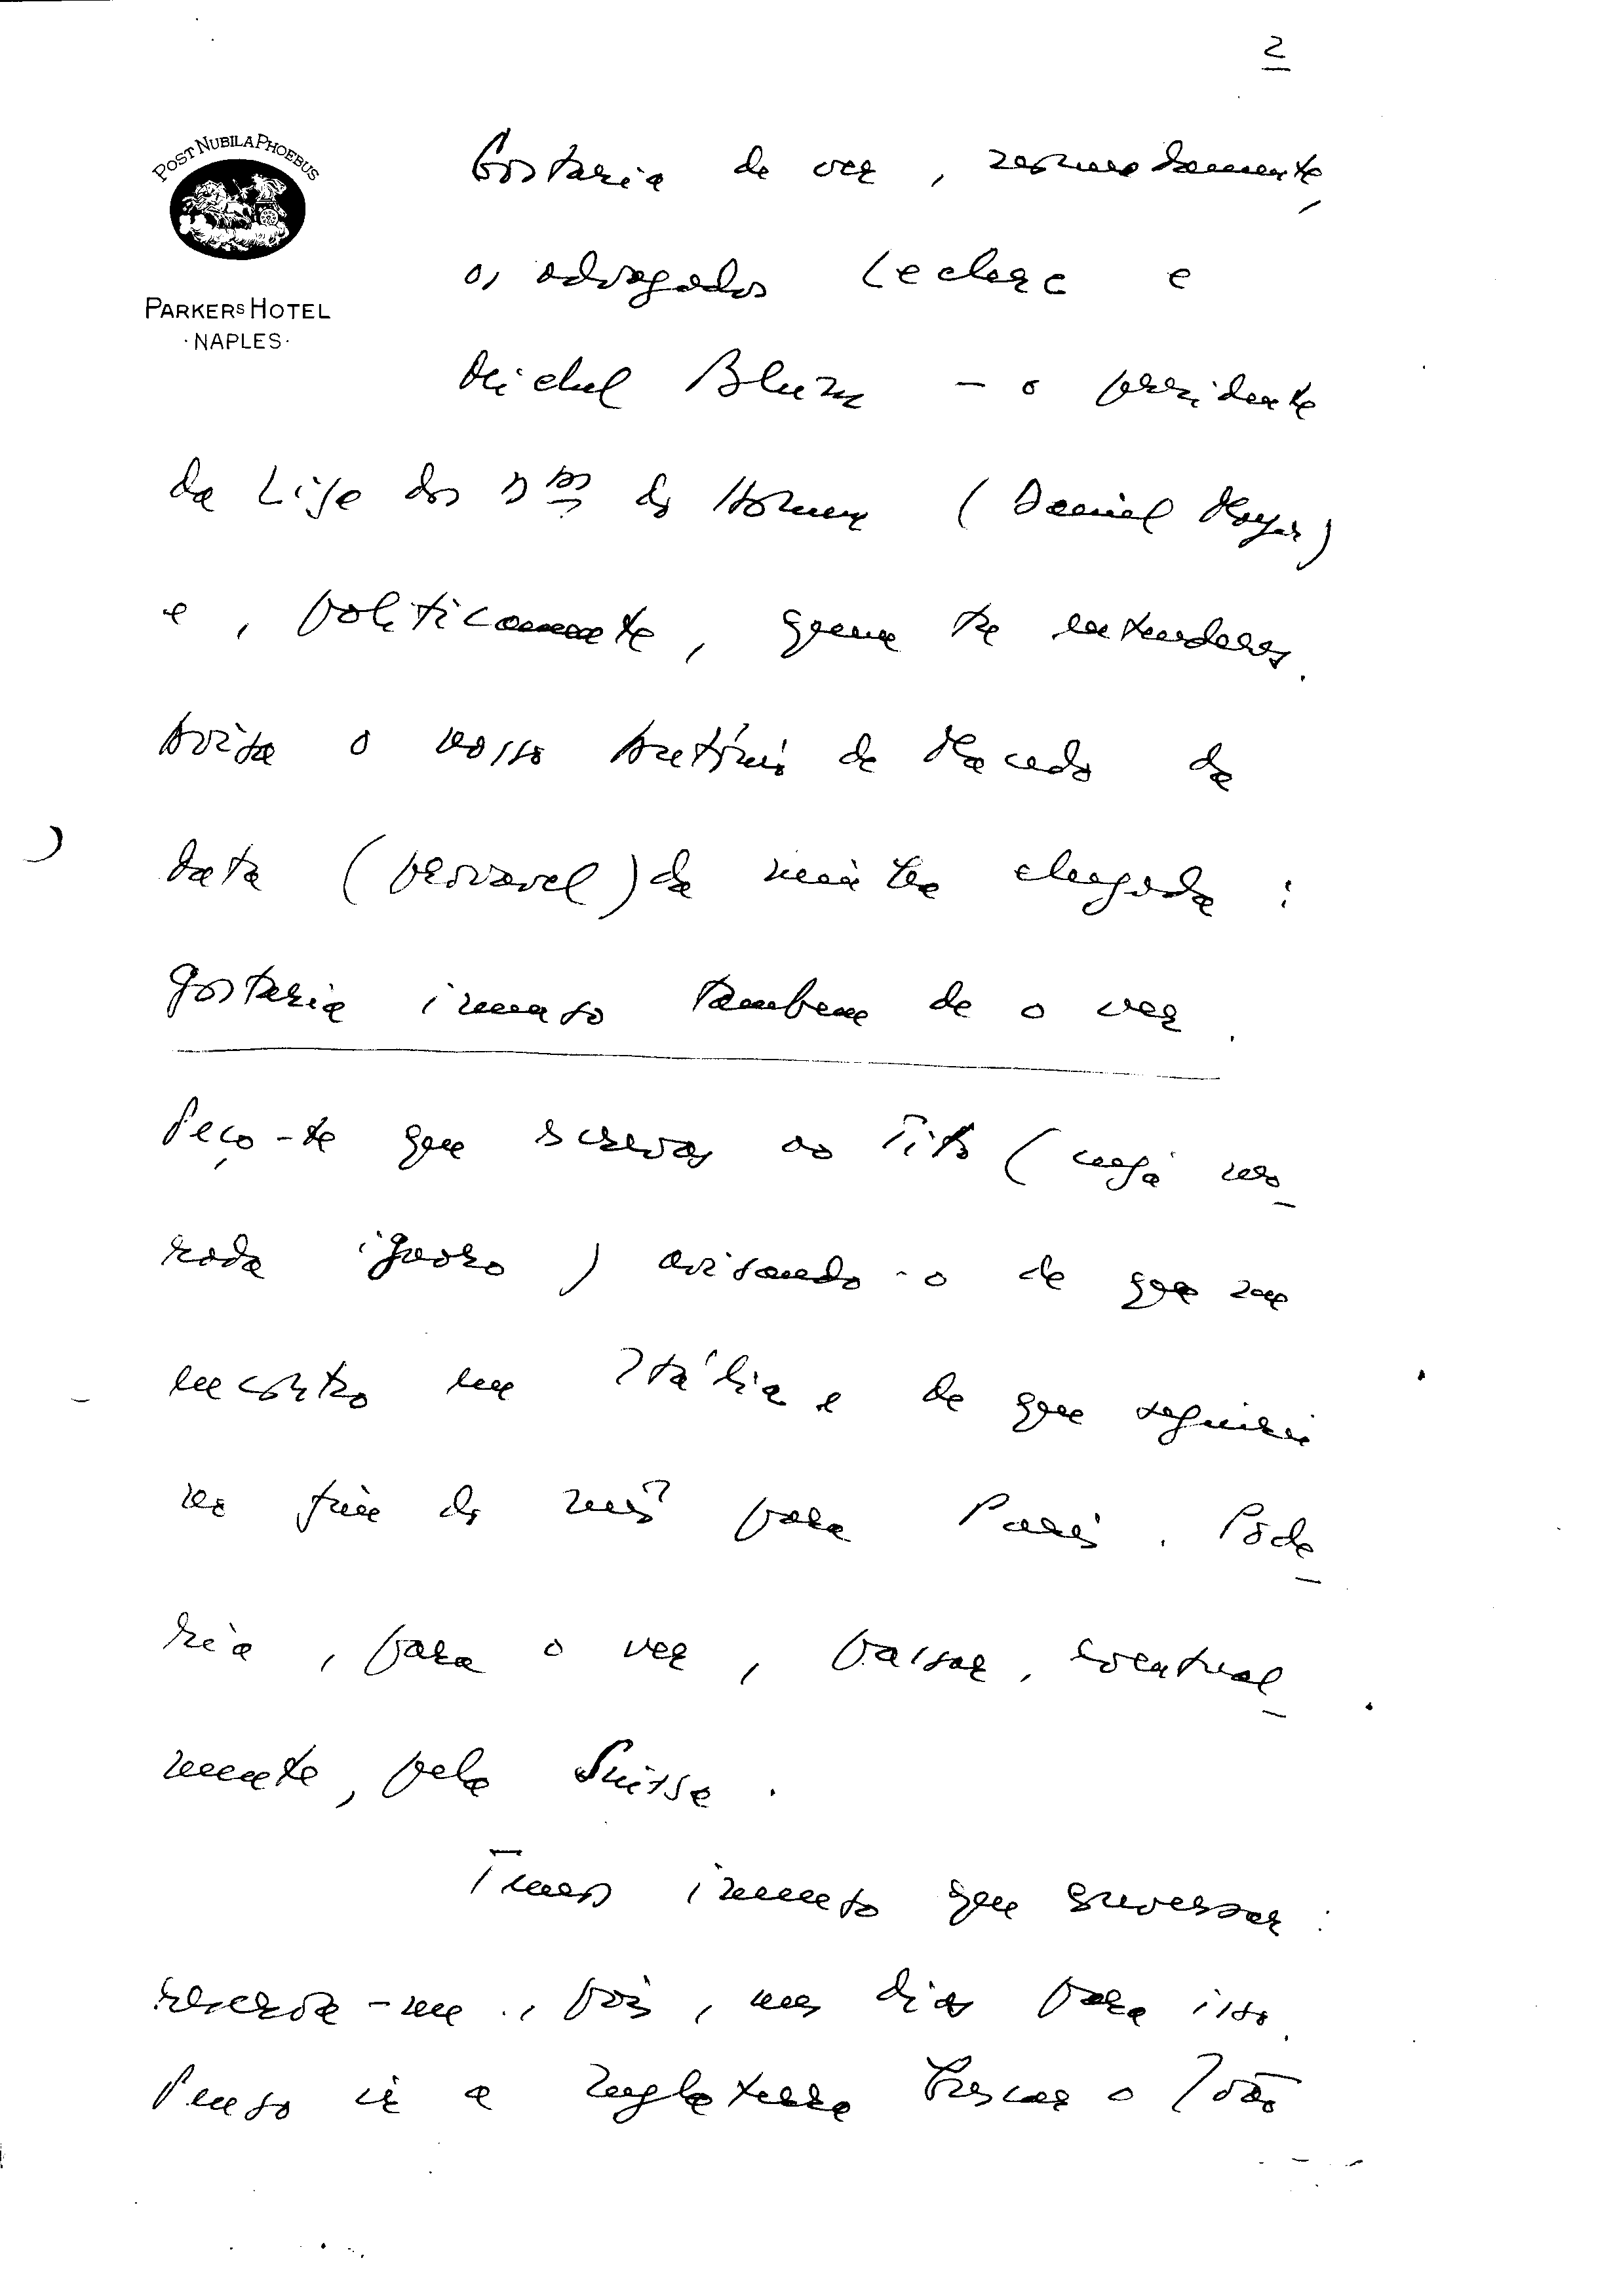 2
POST NUBILA PHOEBUS
PARKERS HOTEL
·NAPLES·
Gostaria de ver, resumidamente,
os advogados Leclerc e
Michel Blum – o presidente
da Liga dos Dtos do Homem (Daniel Mayer)
e, politicamente, quem tu entenderes.
Avisa o nosso António de Macedo da
data (provavel) da minha chegada:
gostaria imenso tambem de o ver.
Peço-te que escrevas ao Tito (cuja mo-
rada ignoro) avisando-o de que me
encontro em Itália e de que seguirei
no fim do mês para Paris. Pode-
ria, para o ver, passar, eventual-
mente, pela Suissa.
Temos imenso que conversar:
reserva-me, pois, uns dias para isso.
Penso ir a Inglaterra buscar o João